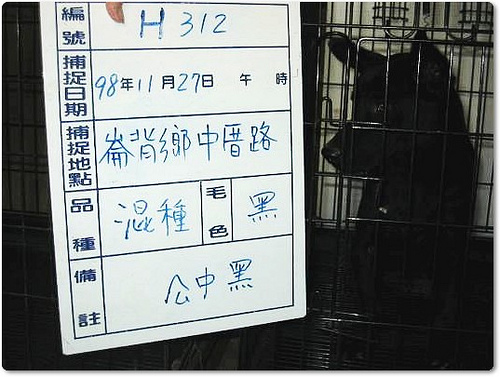 編號 H 312
捕捉日期 98年11月27日 午 時
捕捉地點 崙背鄉中厝路
品種 混種 毛色 黑
備註 公中黑